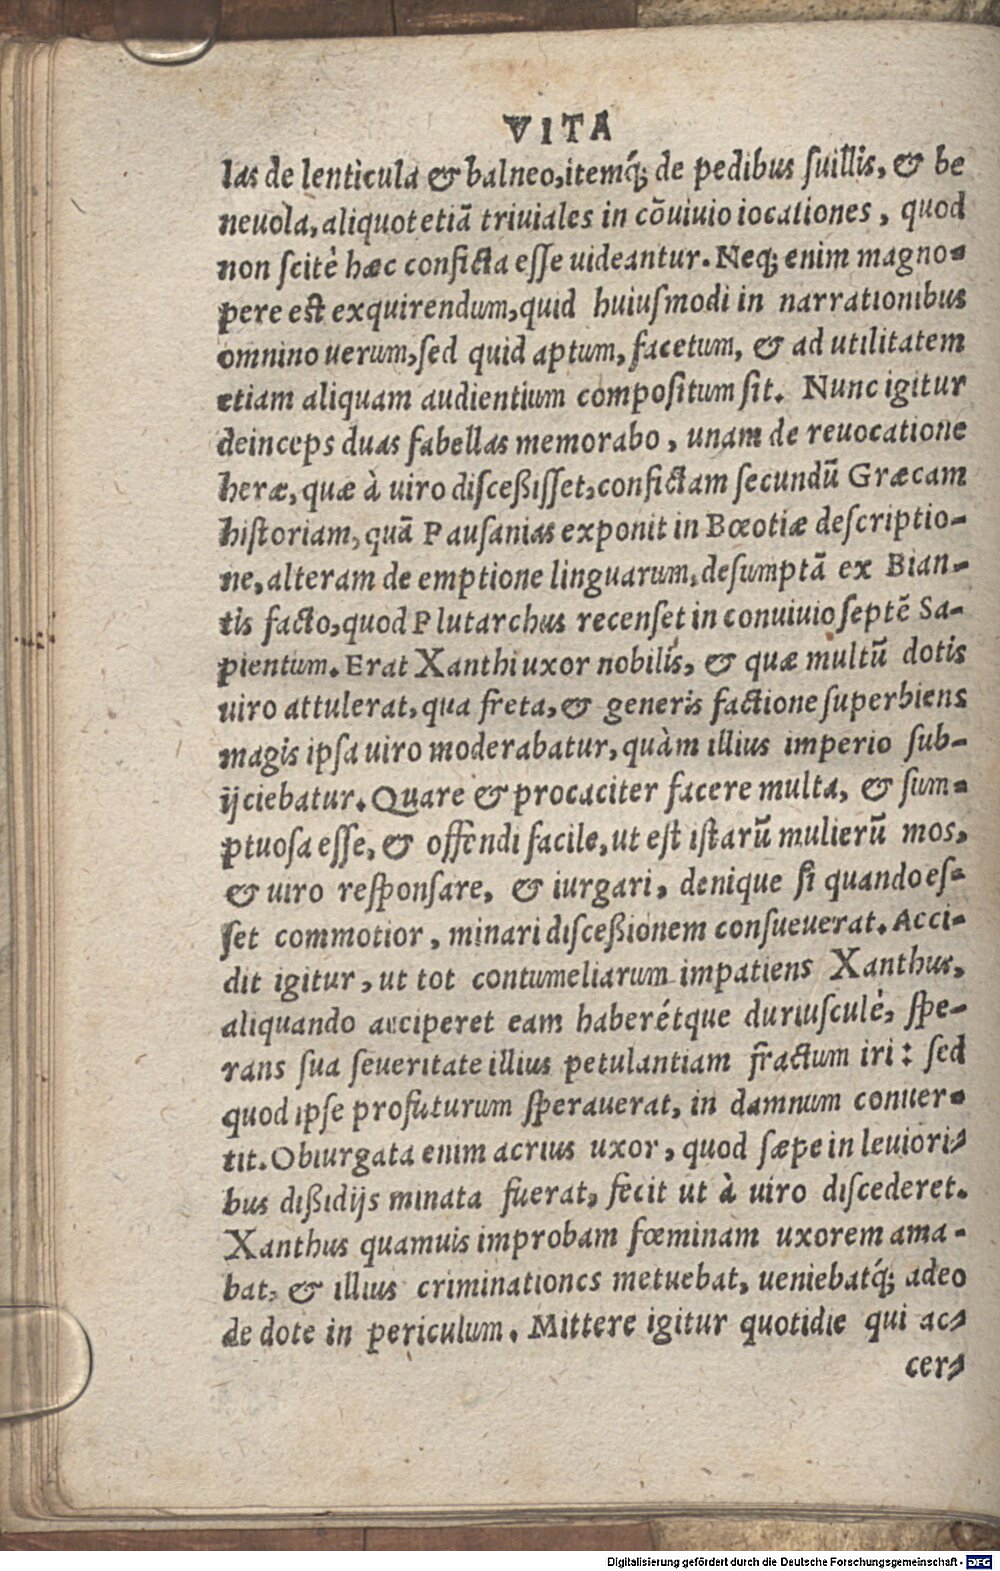 VITA
las de lenticula & balneo, itemq́; de pedibus ſuillis, & be
neuola, aliquot etiā triuiales in cōuiuio iocationes, quod
non ſcitè hæc conficta eſſe uideantur. Neq; enim magno-
pere eſt exquirendum, quid huiuſmodi in narrationibus
omnino uerum, ſed quid aptum, facetum, & ad utilitatem
etiam aliquam audientium compoſitum ſit. Nunc igitur
deinceps duas fabellas memorabo, unam de reuocatione
heræ, quæ à uiro diſceßiſſet, confictam ſecundū Græcam
hiſtoriam, quā Pauſanias exponit in Bœotiæ deſcriptio-
ne, alteram de emptione linguarum, deſumptā ex Bian-
tis facto, quod Plutarchus recenſet in conuiuio ſeptē Sa-
pientum. Erat Xanthi uxor nobilis, & quæ multū dotis
uiro attulerat, qua freta, & generis factione ſuperbiens
magis ipſa uiro moderabatur, quàm illius imperio ſub-
ijciebatur. Quare & procaciter facere multa, & ſum-
ptuoſa eſſe, & offendi facile, ut eſt iſtarū mulierū mos,
& uiro reſponſare, & iurgari, denique ſi quando eſ-
ſet commotior, minari diſceßionem conſueuerat. Acci-
dit igitur, ut tot contumeliarum impatiens Xanthus,
aliquando acciperet eam haberétque duriuſculè, ſpe-
rans ſua ſeueritate illius petulantiam fractum iri: ſed
quod ipſe profuturum ſperauerat, in damnum conuer-
tit. Obiurgata enim acrius uxor, quod ſæpe in leuiori-
bus dißidijs minata fuerat, fecit ut à uiro diſcederet.
Xanthus quamuis improbam fœminam uxorem ama-
bat, & illius criminationes metuebat, ueniebatq́; adeo
de dote in periculum. Mittere igitur quotidie qui ac-
cer-
Digitalisierung gefördert durch die Deutsche Forschungsgemeinschaft - DFG